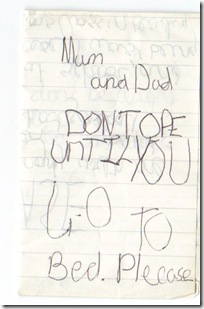 Mum
and Dad
DON'T OPE
UNTIL YOU
GO TO
Bed. Plecase